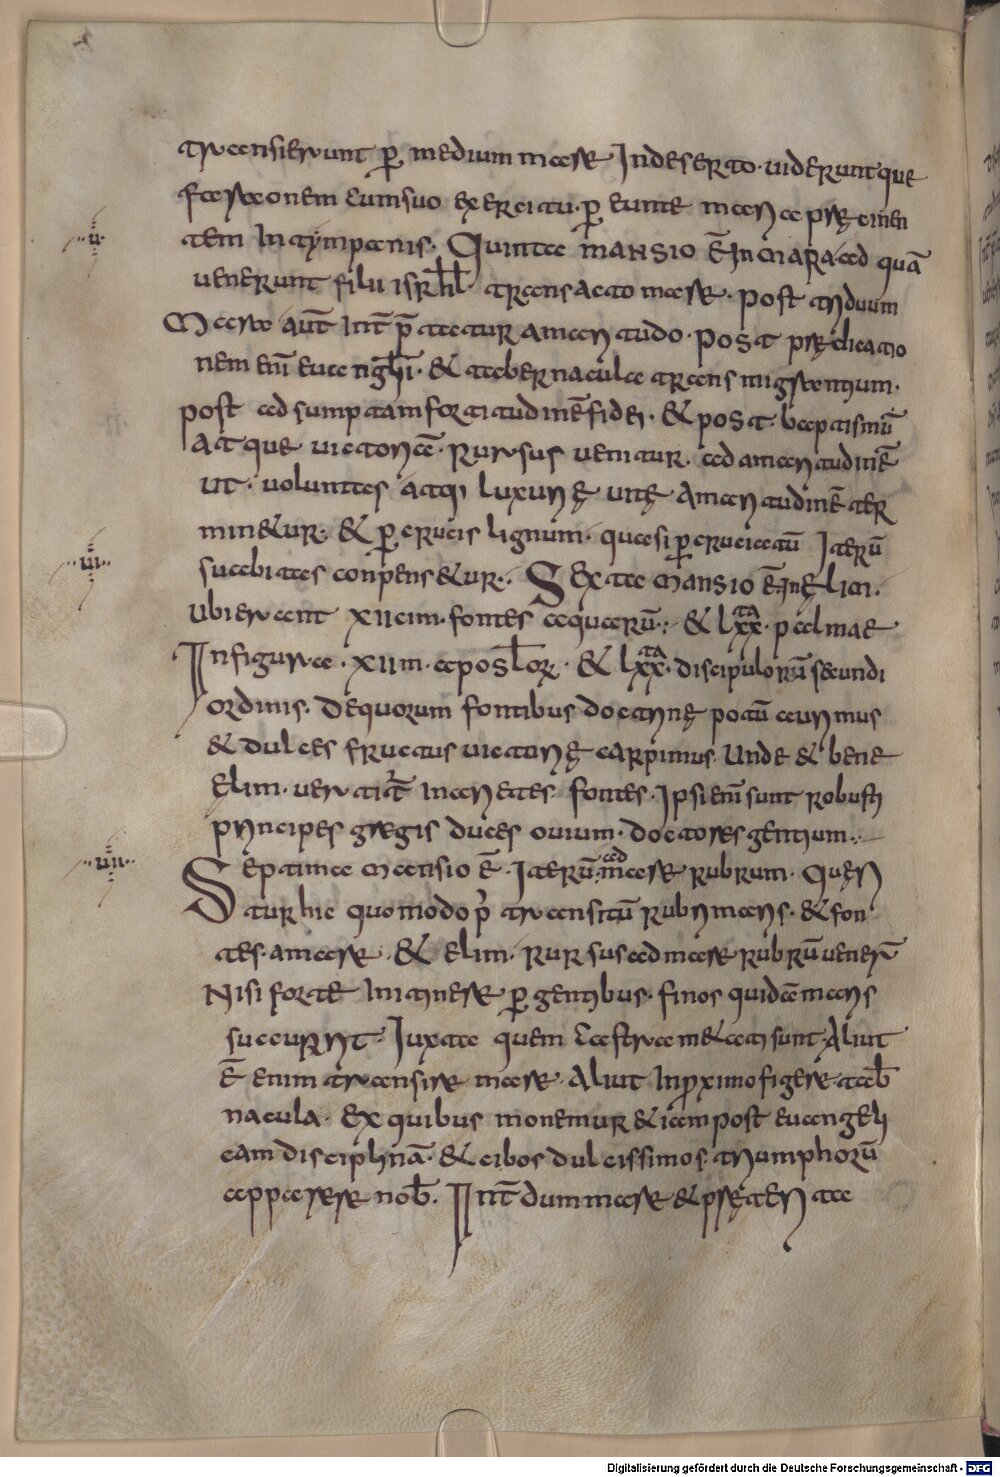 transierunt p̱ medium mare In deserto · uideruntque
faraonem cum suo exercitu · p̱eunte maria pręcinen
·ū· tem In tympanis · Quinta mansio ē In mara · ad quā
uenerunt filii isrl̄ · transacto mare · post triduum
Mara aut̄ Int̄ p̄tatur amaritudo · post prędicatio
nem eni̅ euangl̄ii · & tabernacula transmigrantium ·
post adsumptam fortitudinē fidei · & post baptismū
atque uictoriā · Rursus uenitur ad amaritudinē
ut · uoluntas atq; luxurię uitę amaritudinē ter
min&ur · & p̱ crucis lignum · quasi p̱ cruciatū Iterū
·ūi· suabitas conpens&ur · Sexta mansio ē · In ęlim ·
ubi erant xiicim · fontes aquarū · & lxx ta · palmae
In figura · xiim · apostl̄oꝝ · & lxx ta · discipulorū secundi
ordinis · De quorum fontibus doctrinę potū aurimus
& dulces fructus uictorię carpimus unde & bene
ęlim · uertit̄ In arietes fontes · Ipsi eni̅ sunt robusti
principes gregis duces ouium · doctores gentium ·
·ūii· Septima mansio ē · Iterū ad mare rubrum · Quęri
tur hic quomodo p̄ transitū rubri maris · & fon
tes · amare · & elim · rursus ad mare rubrū uener̄
Nisi forte In itinere p̱gentibus · sinos quidā maris
succurrit · Iuxta quem castra m&ati sunt · Aliut
ē enim transire mare · aliut In p̱ximo figere · tab̄
nacula · ex quibus monemur & iam post euangeli
cam disciplinā · & cibos dulcissimos triumphorū
apparere nob̄ · Int̄dum mare & pręterita
Digitalisierung gefördert durch die Deutsche Forschungsgemeinschaft - DFG